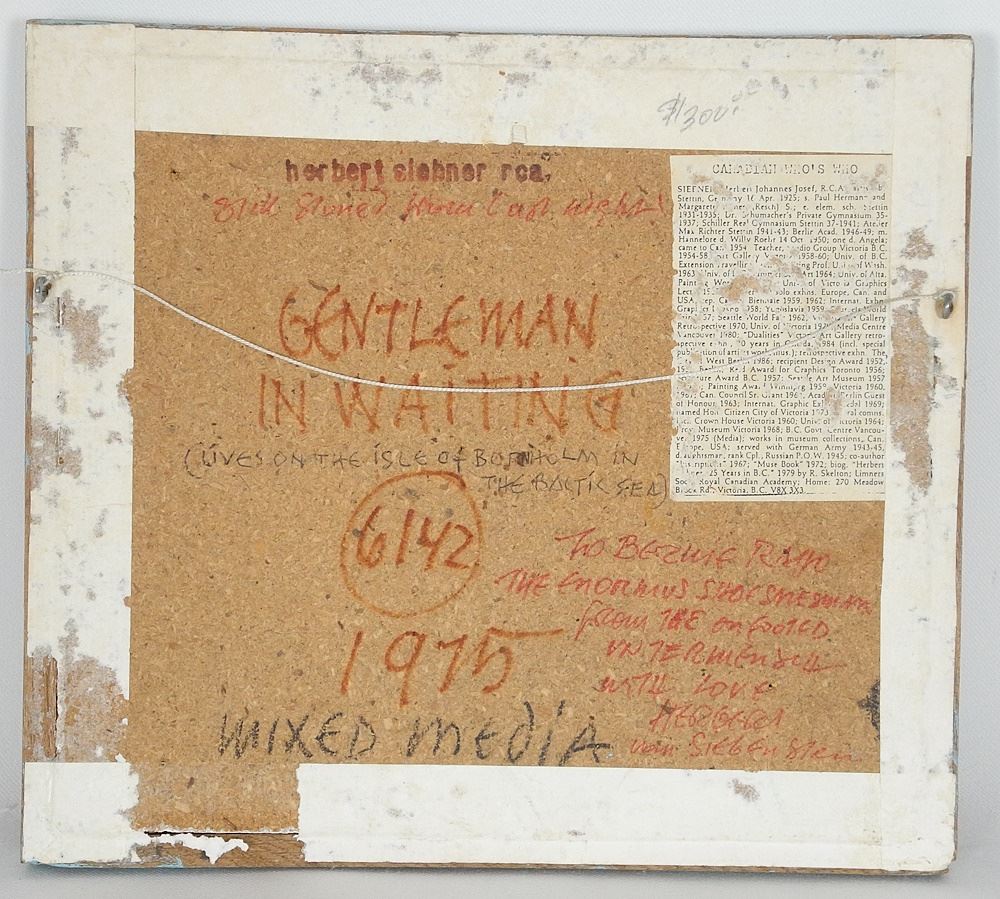 $1300.
herbert siebner rca,
Still Stoned from last night!
GENTLEMAN
IN WAITING
(LIVES ON THE ISLE OF BORNHOLM IN
THE BALTIC SEA)
6142
1975
MIXED MEDIA
CANADIAN WHO'S WHO
Johannes Josef, R.C.A.
Stettin, Germany 16 Apr. 1925; s. Paul Hermann and
Margarete (Resch) S.; e. elem. sch. Stettin
1931-1935; Dr. Schumacher's Private Gymnasium 35-
1937; Schiller Real Gymnasium Stettin 1937-1941; Atelier
Max Richter Stettin 1941-43; Berlin Acad. 1946-49; m.
Hannelore d. Willy Roehr 14 Oct. 1950; one d. Angela;
came to Can. 1954. Teacher, Studio Group Victoria B.C.
1954-58; Art Gallery 1958-60; Univ. of B.C.
Extension Prof. U. of Wash.
1963 Univ. of Art 1964; Univ. of Alta.
Painting Univ. of Victoria Graphics
Lect. solo exhns. Europe, Can. and
USA; rep. Can. Biennale 1959, 1962; Internat. Exhn.
Yugoslavia 1959
57; Seattle World Fair 1962, Gallery
Retrospective 1970, Univ. of Victoria Media Centre
Vancouver 1980; "Dualities" Art Gallery retro-
spective 30 years in Canada, 1984 (incl. special
publication of retrospective exhn. The
West Berlin 1986; recipient Design Award 1952,
Berlin; Reid Award for Graphics Toronto 1956;
Award B.C. 1957; Seattle Art Museum 1957
Painting Award Winnipeg 1959; Victoria 1960,
Can. Council Sr. Grant Berlin Guest
of Honour 1963; Internat. Graphic 1969;
named Hon. Citizen City of Victoria 1973
Crown House Victoria 1960; Univ. of Victoria 1964;
Museum Victoria 1968; B.C. Govt. Centre Vancou-
ver 1975 (Media); works in museum collections, Can.
Europe, USA; served with German Army 1943-45,
draughtsman, rank Cpl., Russian P.O.W. 1945; co-author
1967; "Muse Book" 1972; biog. "Herbert
25 Years in B.C." 1979 by R. Skelton; Limners
Soc. Royal Canadian Academy; Home: 270 Meadow
Brook Rd., Victoria, B.C. V8X 3X3.
TO
THE
FROM THE
WITH LOVE
HERBERT
von SIEBENSTEIN